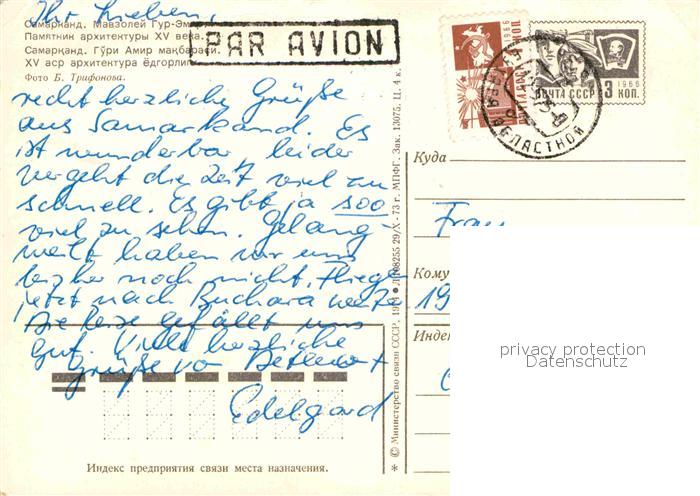 Ihr Lieben,
Самарканд. Мавзолей Гур-Эмир.
Памятник архитектуры XV века.
Самарқанд. Гўри Амир мақбараси.
XV аср архитектура ёдгорлиги.
Фото Б. Трифонова.
PAR AVION
recht herzliche Grüße
aus Samarkand. Es
ist wunderbar leider
vergeht die Zeit viel zu
schnell. Es gibt ja soo
viel zu sehen. Gelang-
weilt haben wir uns
bisher noch nicht. Fliegen
jetzt nach Buchara weiter
Die Reise gefällt uns
gut. Viele herzliche
Grüße von Detlev +
Edelgard
Индекс предприятия связи места назначения.
* © Министерство связи СССР, 1974 • Л 108255 29/X - 73 г. МПФГ. Зак. 13075. Ц. 4 к.
1966
10 КОП.
ПОЧТА СССР
1966
ПОЧТА СССР 3 КОП.
ОБЛАСТНОЙ
Куда
Frau
Кому
19
Индекс
privacy protection
Datenschutz